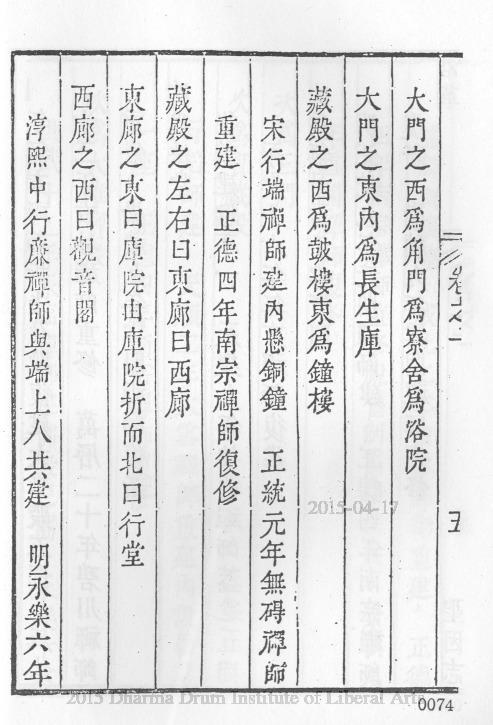 大門之西爲角門爲寮舍爲浴院
大門之東內爲長生庫
藏殿之西爲鼓樓東爲鐘樓
宋行端禪師建內懸銅鐘　正統元年無碍禪師
重建　正德四年南宗禪師復修
藏殿之左右曰東廊曰西廊
東廊之東曰庫院由庫院折而北曰行堂
西廊之西曰觀音閣
淳熙中行廉禪師與端上人共建　明永樂六年
卷之一
五
2015-04-17
2015 Dharma Drum Institute of Liberal Arts
0074